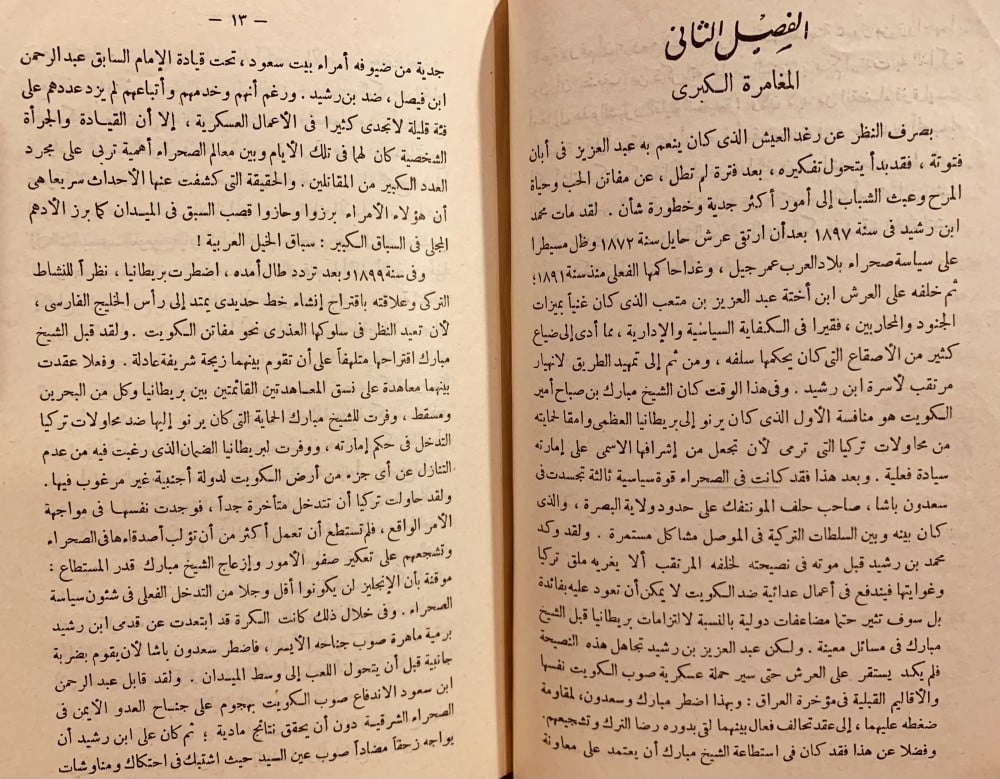 الفصل الثاني
المغامرة الكبرى
بصرف النظر عن رغد العيش الذى كان ينعم به عبد العزيز فى أبان
فتوتة ، فقد بدأ يتحول تفكيره ، بعد فترة لم تطل ، عن مفاتن الحب وحياة
المرح وعيث الشباب إلى أمور أكثر جدية وخطورة شأن . لقد مات محمد
ابن رشيد فى سنة ١٨٩٧ بعد أن ارتقى عرش حايل سنة ١٨٧٢ وظل مسيطرا
على سياسة صحراء بلاد العرب عمر جيل ، وغدا حاكمها الفعلى منذ سنة ١٨٩١؛
ثم خلفه على العرش ابن أختة عبد العزيز بن متعب الذى كان غنياً بميزات
الجنود والمحاربين ، فقيرا فى الكفاية السياسية والإدارية ، مما أدى إلى ضياع
كثير من الأصقاع التى كان يحكمها سلفه ، ومن ثم إلى تمهيد الطريق لانهيار
مرتقب لأسرة ابن رشيد . وفى هذا الوقت كان الشيخ مبارك بن صباح أمير
الكويت هو منافسة الأول الذى كان يرنو إلى بريطانيا العظمى وامقا لحمايته
من محاولات تركيا التى ترمى لأن تجعل من إشرافها الاسمى على إمارته
سيادة فعلية . وبعد هذا فقد كانت فى الصحراء قوة سياسية ثالثة تجسدت فى
سعدون باشا ، صاحب حلف المونتفك على حدود ولاية البصرة ، والذى
كان بينه وبين السلطات التركية فى الموصل مشاكل مستمرة . ولقد وكد
محمد بن رشيد قبل موته فى نصيحته لخلفه المرتقب ألا يغريه ملق تركيا
وغوايتها فيندفع فى أعمال عدائية ضد الكويت لا يمكن أن تعود عليه بفائدة
بل سوف تثير حتما مضاعفات دولية بالنسبة لالتزامات بريطانيا قبل الشيخ
مبارك فى مسائل معينة . ولكن عبد العزيز بن رشيد تجاهل هذه النصيحة
فلم يكد يستقر على العرش حتى سير حملة عسكرية صوب الكويت نفسها
والأقاليم القبلية فى مؤخرة العراق : وبهذا اضطر مبارك وسعدون، لمقاومة
ضغطه عليهما ، إلى عقد تحالف فعال بينهما لقى بدوره رضا الترك وتشجيعهم.
وفضلا عن هذا فقد كان فى استطاعة الشيخ مبارك أن يعتمد على معاونة
— ١٣ —
جدية من ضيوفه أمراء بيت سعود ، تحت قيادة الإمام السابق عبد الرحمن
ابن فيصل ، ضد بن رشيد . ورغم أنهم وخدمهم وأتباعهم لم يزد عددهم على
فئة قليلة لا تجدى كثيرا فى الأعمال العسكرية ، إلا أن القيادة والجرأة
الشخصية كان لها فى تلك الأيام وبين معالم الصحراء أهمية تربى على مجرد
العدد الكبير من المقاتلين . والحقيقة التى كشفت عنها الأحداث سريعا هى
أن هؤلاء الأمراء برزوا وحازوا قصب السبق فى الميدان كما برز الأدهم
المجلى فى السباق الكبير : سباق الخيل العربية !
وفى سنة ١٨٩٩ وبعد تردد طال أمده ، اضطرت بريطانيا ، نظراً للنشاط
التركى وعلاقته باقتراح إنشاء خط حديدى يمتد إلى رأس الخليج الفارسى ،
لأن تعيد النظر فى سلوكها العذرى نحو مفاتن الكويت . ولقد قبل الشيخ
مبارك اقتراحها متلهفاً على أن تقوم بينهما زيجة شريفة عادلة . وفعلا عقدت
بينهما معاهدة على نسق المعاهدتين القائمتين بين بريطانيا وكل من البحرين
ومسقط ، وفرت للشيخ مبارك الحماية التى كان يرنو إليها ضد محاولات تركيا
التدخل فى حكم إمارته ، ووفرت لبريطانيا الضمان الذى رغبت فيه من عدم
التنازل عن أى جزء من أرض الكويت لدولة أجنبية غير مرغوب فيها .
ولقد حاولت تركيا أن تتدخل متأخرة جداً ، فوجدت نفسها فى مواجهة
الأمر الواقع ، فلم تستطع أن تعمل أكثر من أن تؤلب أصدقاءها فى الصحراء
وتشجعهم على تعكير صفو الأمور وإزعاج الشيخ مبارك قدر المستطاع :
موقنة بأن الإنجليز لن يكونوا أقل وجلا من التدخل الفعلى فى شئون سياسة
الصحراء . وفى خلال ذلك كانت الكرة قد ابتعدت عن قدمى ابن رشيد
برمية ماهرة صوب جناحه الأيسر ، فاضطر سعدون باشا لأن يقوم بضربة
جانبية قبل أن يتحول اللعب إلى وسط الميدان . ولقد قابل عبد الرحمن
ابن سعود الاندفاع صوب الكويت بهجوم على جناح العدو الأيمن فى
الصحراء الشرقية دون أن يحقق نتائج مادية ؛ ثم كان على ابن رشيد أن
يواجه زحفاً مضاداً صوب عين السيد حيث اشتبك فى احتكاك ومناوشات